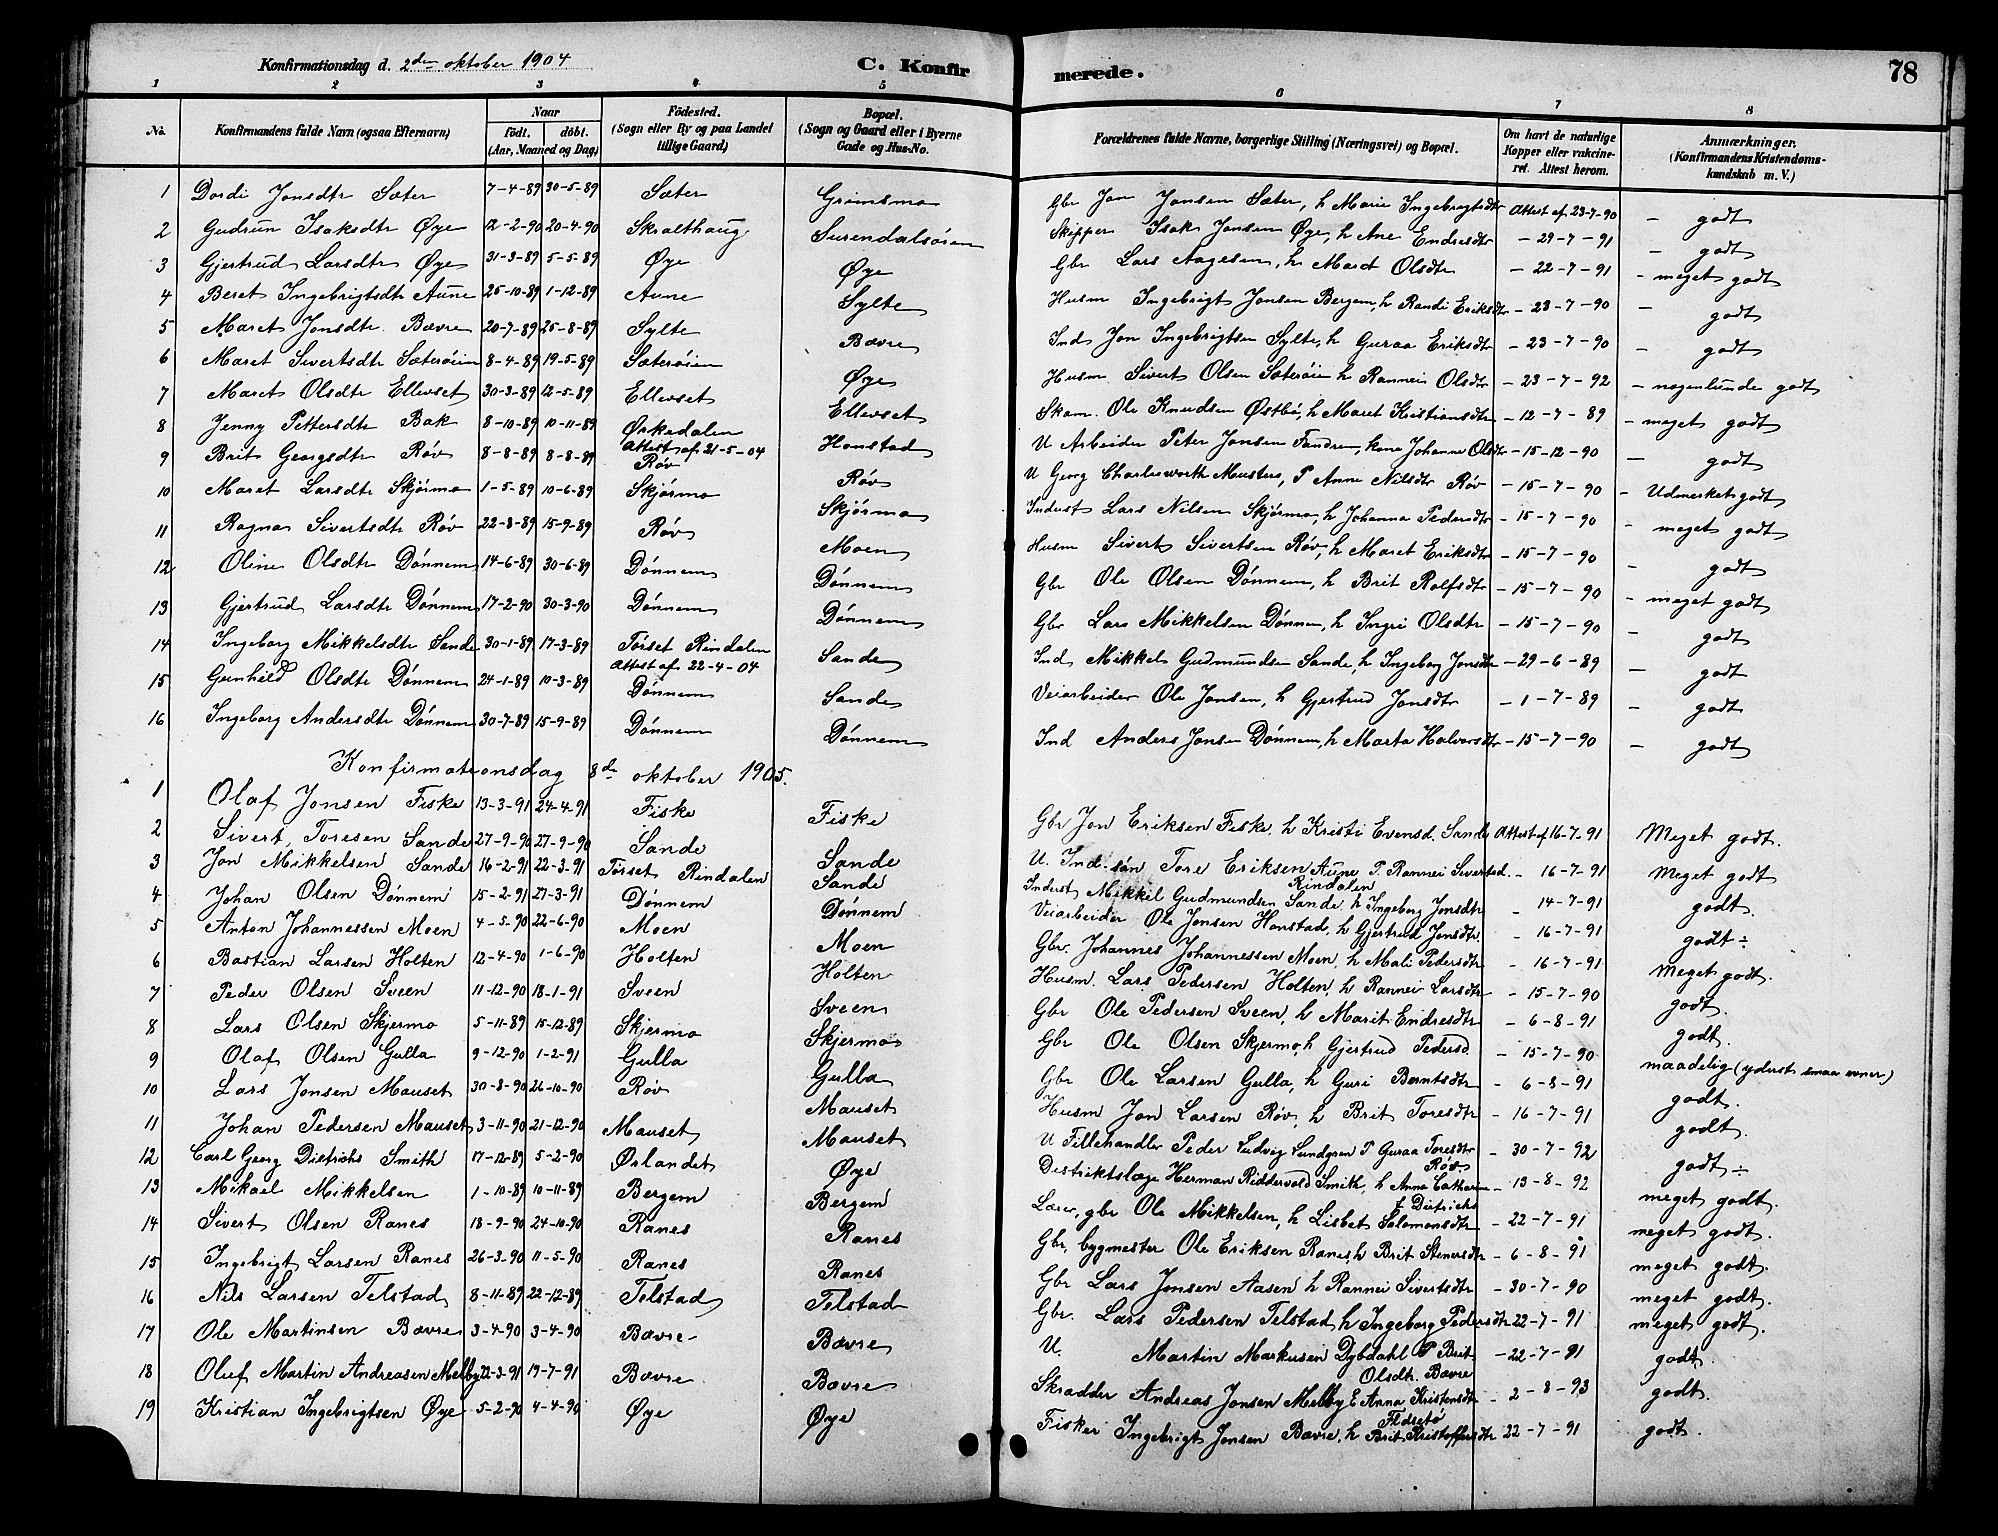 Konfirmationsdag d. 2den oktober 1904 C. Konfirmerede. 78
1 2 3 4 5 6 7 8
No. Konfirmandens fulde Navn (ogsaa Efternavn) Naar födt. döbt. (Aar, Maaned og Dag) Födested. (Sogn eller By og paa Landet tillige Gaard) Bopæl. (Sogn og Gaard eller i Byerne Gade og Hus-No. Forældrenes fulde Navne, borgerlige Stilling (Næringsvei) og Bopæl. Om havt de naturlige Kopper eller vakcineret. Attest herom. Anmærkninger. (Konfirmandens Kristendomskundskab m. V.)
1 Dordi Jonsdtr Sæter 7-4-89 30-5-89 Sæter Grimsmo Gbr Jon Jonsen Sæter, h Marie Ingebrigtsdtr Attest af 23-7-90 - godt
2 Gudrun Isaksdtr Øye 12-2-90 20-4-90 Skralthaug Surendalsøren Skipper Isak Jonsen Øye, h Ane Endresdtr - 29-7-91 - godt
3 Gjertrud Larsdtr Øye 31-3-89 5-5-89 Øye Øye Gbr Lars Aagesen, h Maret Olsdtr - 22-7-91 - meget godt
4 Beret Ingebrigtsdtr Aune 25-10-89 1-12-89 Aune Sylte Husm Ingebrigt Jonsen Bergem, h Randi Eriksdtr - 23-7-90 - godt
5 Maret Jonsdtr Bævre 20-7-89 25-8-89 Sylte Bævre Ind Jon Ingebrigtsen Sylte, h Guraa Eriksdtr - 23-7-90 - godt
6 Maret Sivertsdtr Sæterøien 8-4-89 19-5-89 Sæterøien Øye Husm Sivert Olsen Sæterøie h Rannei Olsdtr - 23-7-92 - nogenlunde godt
7 Maret Olsdtr Ellevset 30-3-89 12-5-89 Ellevset Ellevset Skom. Ole Knudsen Østbø, h Maret Kristiansdtr - 12-7-89 - meget godt
8 Jenny Pettersdtr Bak 8-10-89 10-11-89 Ørkedalen Attest af 21-5-04 Honstad U Arbeider Peter Jonsen Fandrem, kona Johanne Olsdtr - 15-12-90 - godt
9 Brit Georgsdtr Røv 8-8-89 8-8-89 Røv Røv U Georg Charlesworth Musters, P Anne Nilsdtr Røv - 15-7-90 - Udmerket godt
10 Maret Larsdtr Skjørmo 1-5-89 10-6-89 Skjørmo Skjørmo Inderst Lars Nilsen Skjørmo, h Johanna Pedersdtr - 15-7-90 - meget godt
11 Ragna Sivertsdtr Røv 22-8-89 15-9-89 Røv Moen Husm Sivert Sivertsen Røv, h Maret Eriksdtr - 15-7-90 - godt
12 Oline Olsdtr Dønnem 14-6-89 30-6-89 Dønnem Dønnem Gbr Ole Olsen Dønnem, h Brit Rolfsdtr - 15-7-90 - meget godt
13 Gjertrud Larsdtr Dønnem 17-2-90 30-3-90 Dønnem Dønnem Gbr Lars Mikkelsen Dønnem, h Ingri Olsdtr - 15-7-90 - godt
14 Ingeborg Mikkelsdtr Sande 30-1-89 17-3-89 Torset Rindalen Attest af 22-4-04 Sande Ind Mikkel Gudmundsen Sande, h Ingeborg Jonsdtr - 29-6-89 - godt
15 Gunhild Olsdtr Dønnem 24-1-89 10-3-89 Dønnem Sande Veiarbeider Ole Jonsen, h Gjertrud Jonsdtr - 1-7-89 - godt
16 Ingeborg Andersdtr Dønnem 30-7-89 15-9-89 Dønnem Dønnem Ind Anders Jonsen Dønnem, h Marta Halvorsdtr - 15-7-90 - godt
Konfirmationsdag 8de oktober 1905.
1 Olaf Jonsen Fiske 13-3-91 24-4-91 Fiske Fiske Gbr Jon Eriksen Fiske, h Kristi Evensd. Sande Attest af 16-7-91 Meget godt.
2 Sivert Toresen Sande 27-9-90 27-9-90 Sande Sande U. Ind. søn Tore Eriksen Aune P. Rannei Sivertsd. - 16-7-91 Meget godt
3 Jon Mikkelsen Sande 16-2-91 22-3-91 Torset Rindalen Sande Inderst Mikkil Gudmundsen Sande, Rindalen h Ingeborg Jonsdtr - 14-7-91 godt.
4 Johan Olsen Dønnem 15-2-91 27-3-91 Dønnem Dønnem Veiarbeider Ole Jonsen Honstad, h Gjertrud Jonsdtr. - 16-7-91 godt ÷
5 Anton Johannessen Moen 4-5-90 22-6-90 Moen Moen Gbr. Johannes Johannessen Moen, h Mali Pedersdtr - 16-7-91 Meget godt.
6 Bastian Larsen Holten 12-4-90 1-6-90 Holten Holten Husm. Lars Pedersen Holten, h Rannei Larsdtr - 15-7-90 godt.
7 Peder Olsen Sveen 11-12-90 18-1-91 Sveen Sveen Gbr Ole Pedersen Sveen, h Marit Endresdtr - 6-8-91 godt.
8 Lars Olsen Skjermo 5-11-89 15-12-89 Skjermo Skjermo Gbr Ole Olsen Skjermo, h Gjertrud Pedersd. - 15-7-90 maadelig (yderst smaa evner)
9 Olaf Olsen Gulla 9-12-90 1-2-91 Gulla Gulla Gbr Ole Larsen Gulla, h Guri Berntsdtr - 6-8-91 godt.
10 Lars Jonsen Mauset 30-8-90 26-10-90 Røv Mauset Husm Jon Larsen Røv, h Brit Toresdtr - 16-7-91 godt.
11 Johan Pedersen Mauset 3-11-90 21-12-90 Mauset Mauset U Fillehandler Peder Ludvig Lundgren P Guraa Toresdtr Røv - 30-7-92 godt ÷
12 Carl Georg Dietrichs Smith 17-12-89 5-2-90 Ørlandet Øye Distriktslæge Herman Riddervold Smith, h Anna Catharine f Dietrichs - 13-8-92 meget godt.
13 Mikael Mikkelsen 1-10-89 10-11-89 Bergem Bergem Lærer, gbr Ole Mikkelsen, h Lisbet Salomonsdtr - 22-7-91 meget godt.
14 Sivert Olsen Ranes 18-9-90 24-10-90 Ranes Ranes Gbr, bygmester Ole Eriksen Ranes, h Brit Stenersdtr - 6-8-91 meget godt.
15 Ingebrigt Larsen Ranes 26-3-90 11-5-90 Ranes Ranes Gbr Lars Jonsen Aasen h Rannei Sivertsdtr - 30-7-90 meget godt.
16 Nils Larsen Telstad 8-11-89 22-12-89 Telstad Telstad Gbr. Lars Pedersen Telstad h Ingeborg Pedersdtr 22-7-91 meget godt.
17 Ole Martinsen Bævre 3-4-90 3-4-90 Bævre Bævre U. Martin Markusen Dybdahl P Brit Olsdtr. Bævre - 22-7-91 godt.
18 Oluf Martin Andreasen Melby 22-3-91 19-7-91 Bævre Bævre Skrædder Andreas Jonsen Melby E Anna Kristensdtr Fldsetø - 2-8-93 godt.
19 Kristian Ingebrigtsen Øye 5-2-90 4-4-90 Øye Øye Fisker Ingebrigt Jonsen Bævre, h Brit Kristoffersdtr 22-7-91 godt.